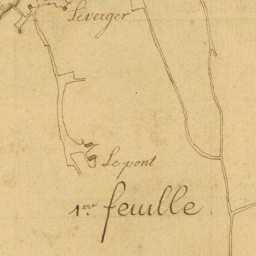 Leverger
Le pont
1ere feuille